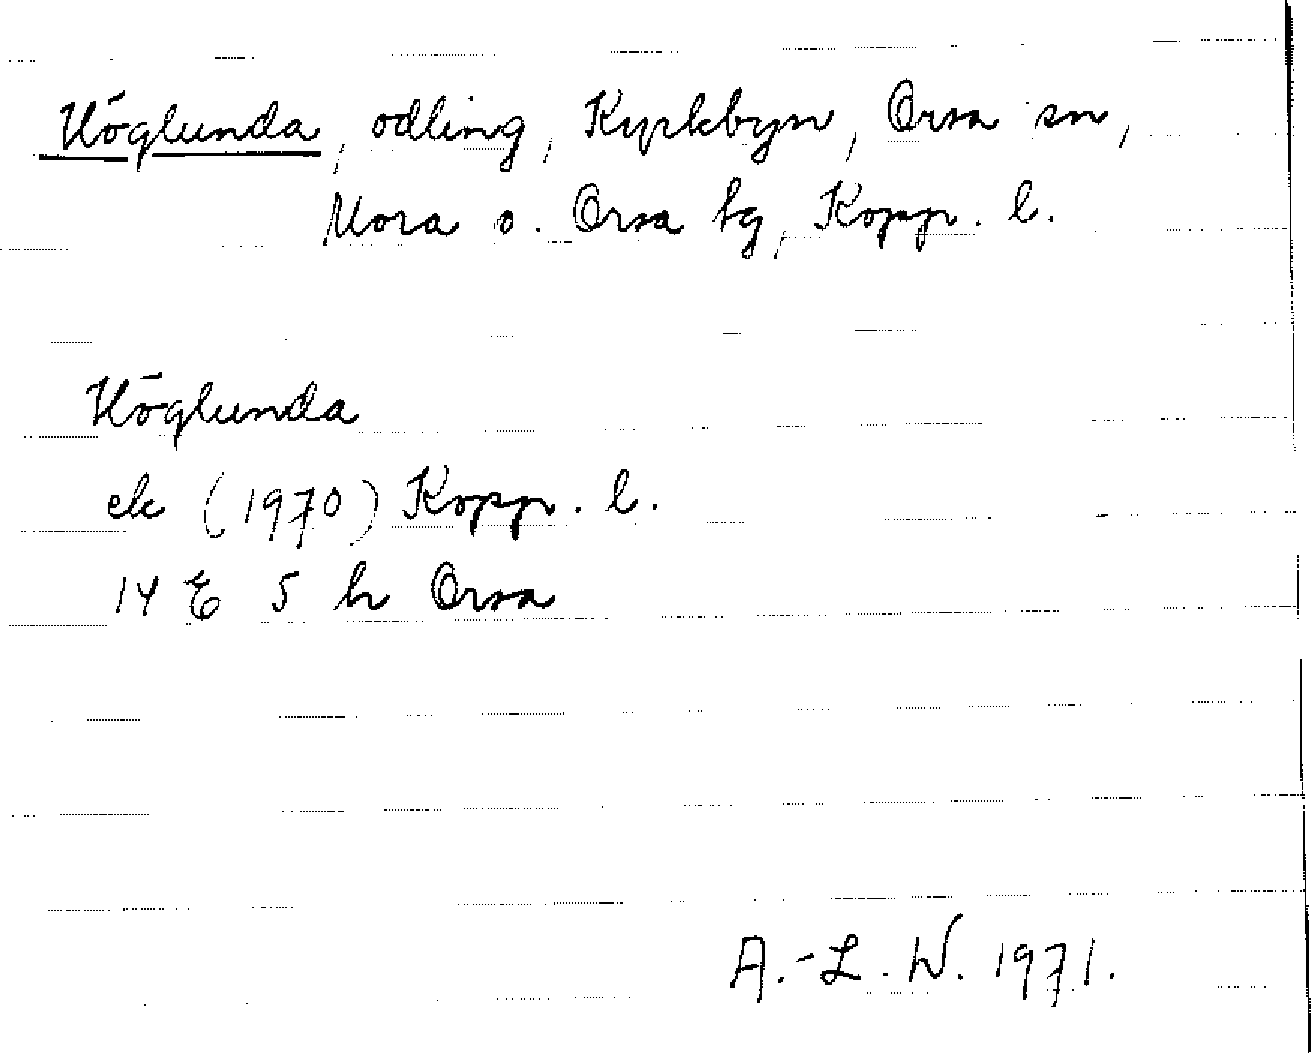 Höglunda, odling, Kyrkbyn, Orsa sn,
Mora o. Orsa tg, Kopp. l.
Höglunda
ek (1970) Kopp. l.
14 E 5 h Orsa
A.-L. W. 1971.